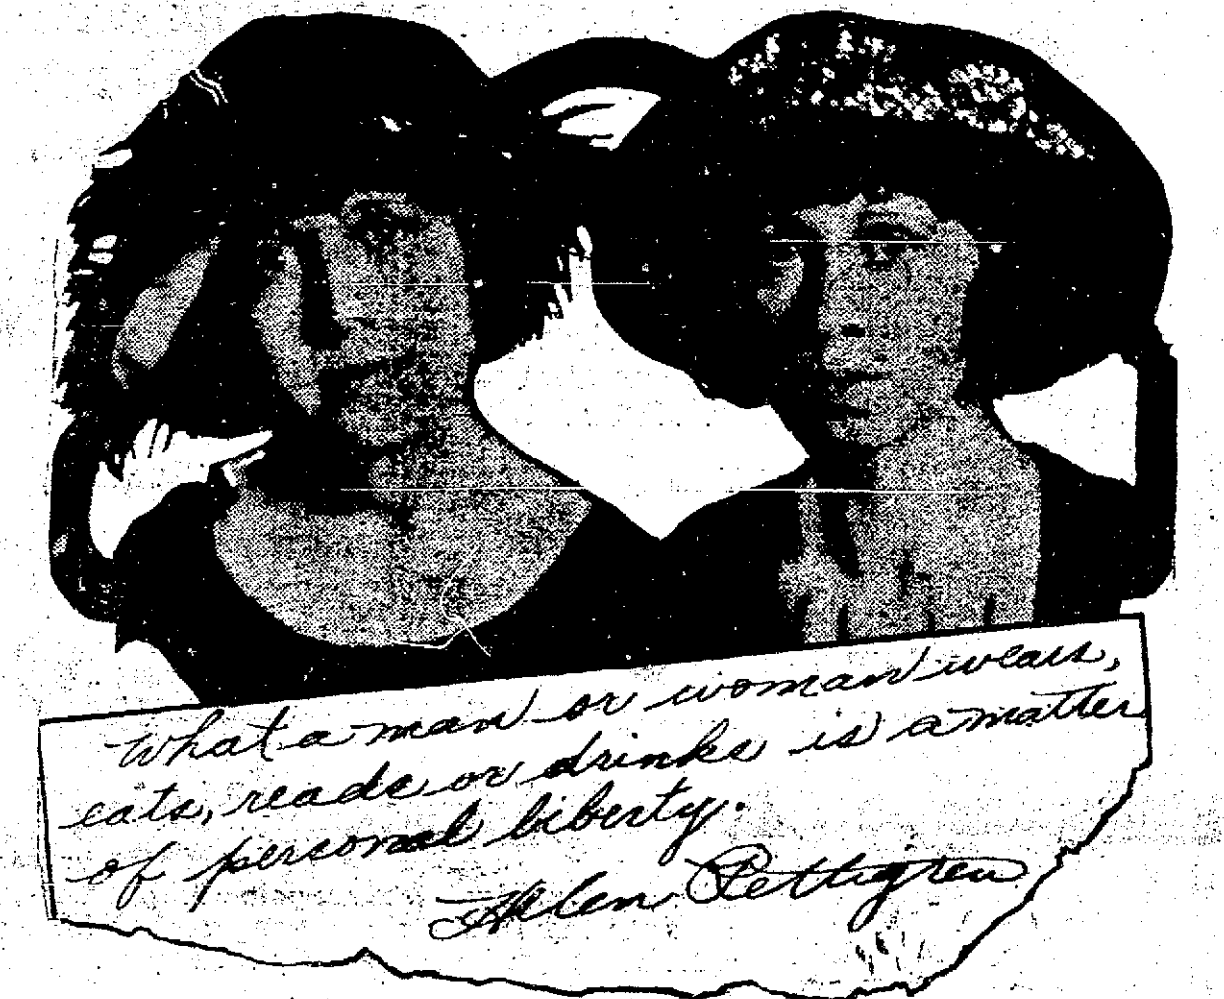 What a man or woman wears,
eats, reads or drinks is a matter
of personal liberty.
Helen Pettigrew